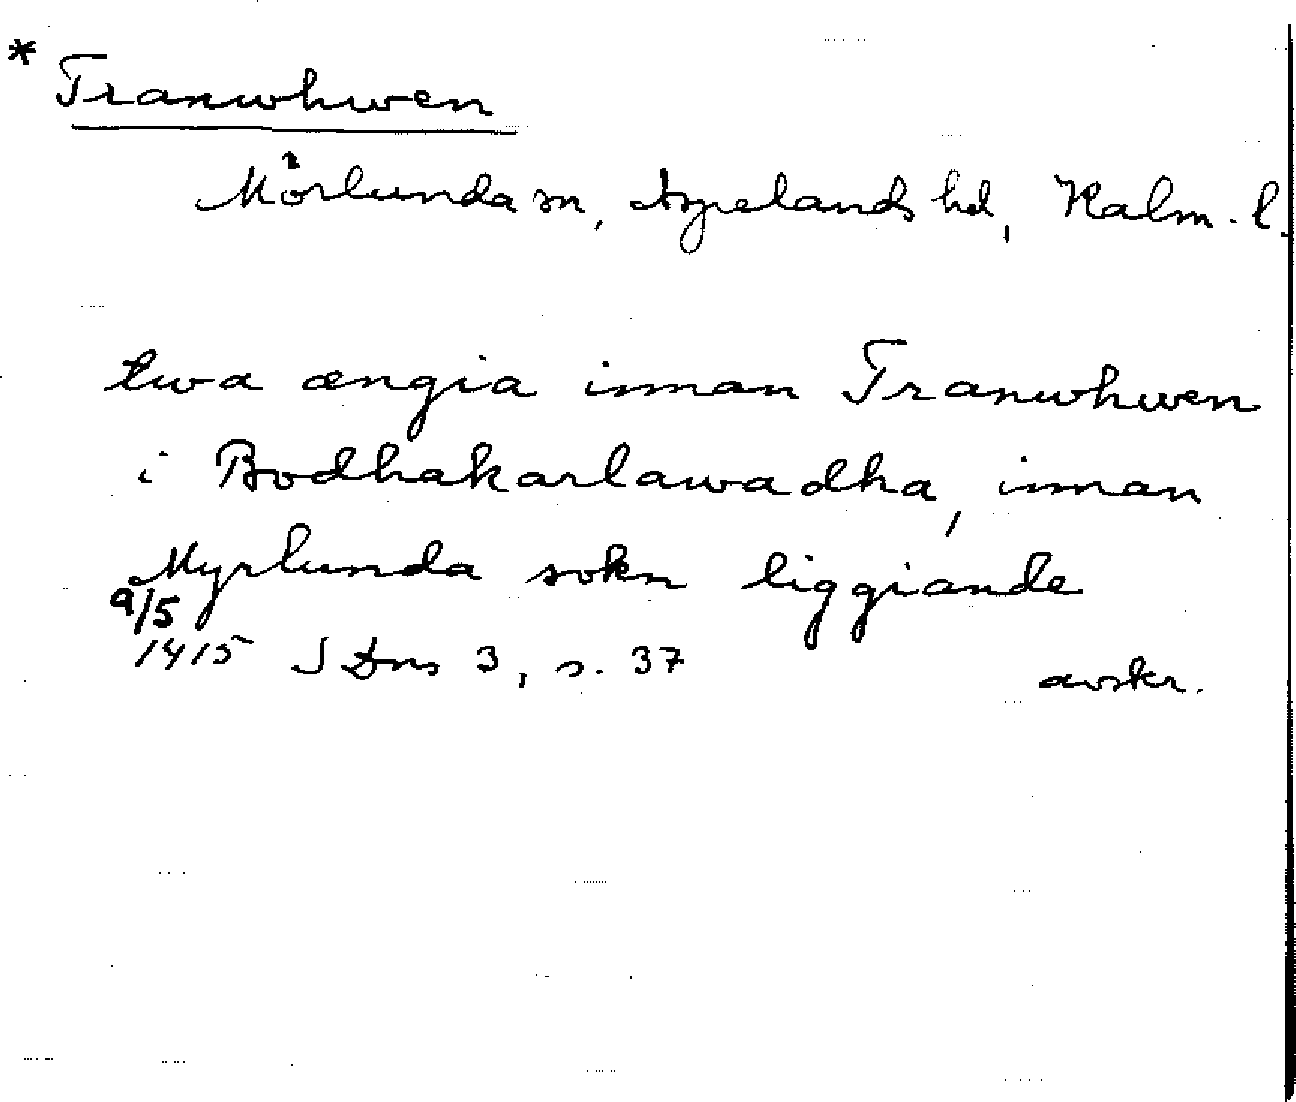 * Tranwhwen
Mörlunda sn, Aspelands hd, Kalm. l.
twa ængia innan Tranwhwen
i Bodhakarlawadha, innan
Myrlunda sokn liggiande
9/5
1415 SDns 3, s. 37 avskr.